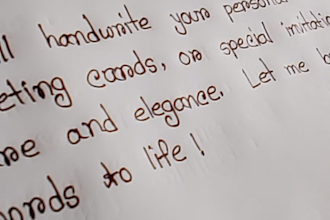 ll handwrite your personal
eting cards, or special invitatio
re and elegance. Let me b
ords to life!